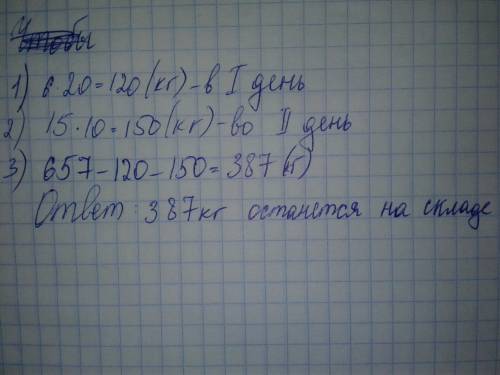 1) 6·20=120(кг)-в I день
2) 15·10=150(кг)-во II день
3) 657-120-150=387(кг)
Ответ: 387кг останется на складе